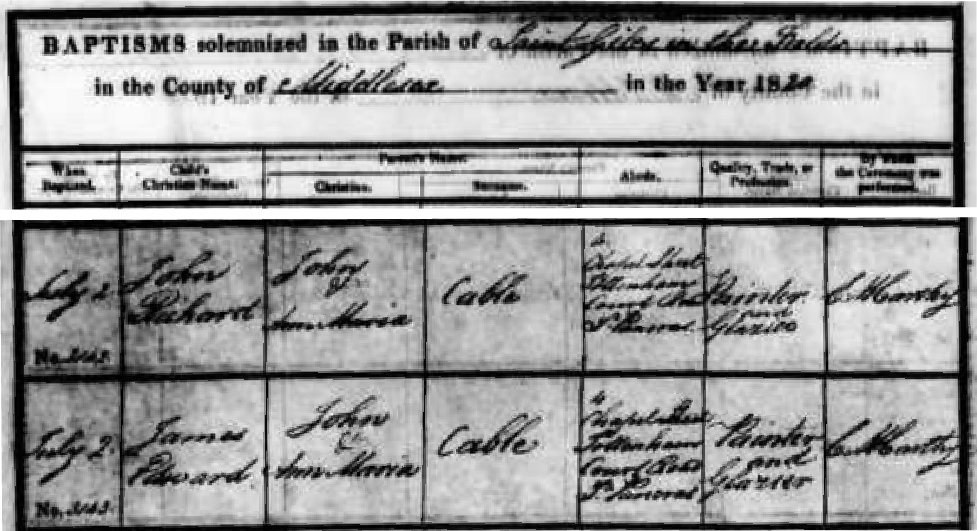 BAPTISMS solemnized in the Parish of Saint Giles in the Fields
in the County of Middlesex in the Year 1820
When Baptized.
Child's Christian Name.
Parent's Name.
Christian.
Surname.
Abode.
Quality, Trade, or Profession.
By whom the Ceremony was performed.
July 2
No.
John
Richard
John
&
Ann Maria
Cable
4
Chapel Street
Tottenham
Court Road
St Pancras
Painter
and
Glazier
July 2.
No.
James
Edward
John
&
Ann Maria
Cable
4
Chapel Street
Tottenham
Court Road
St Pancras
Painter
and
Glazier